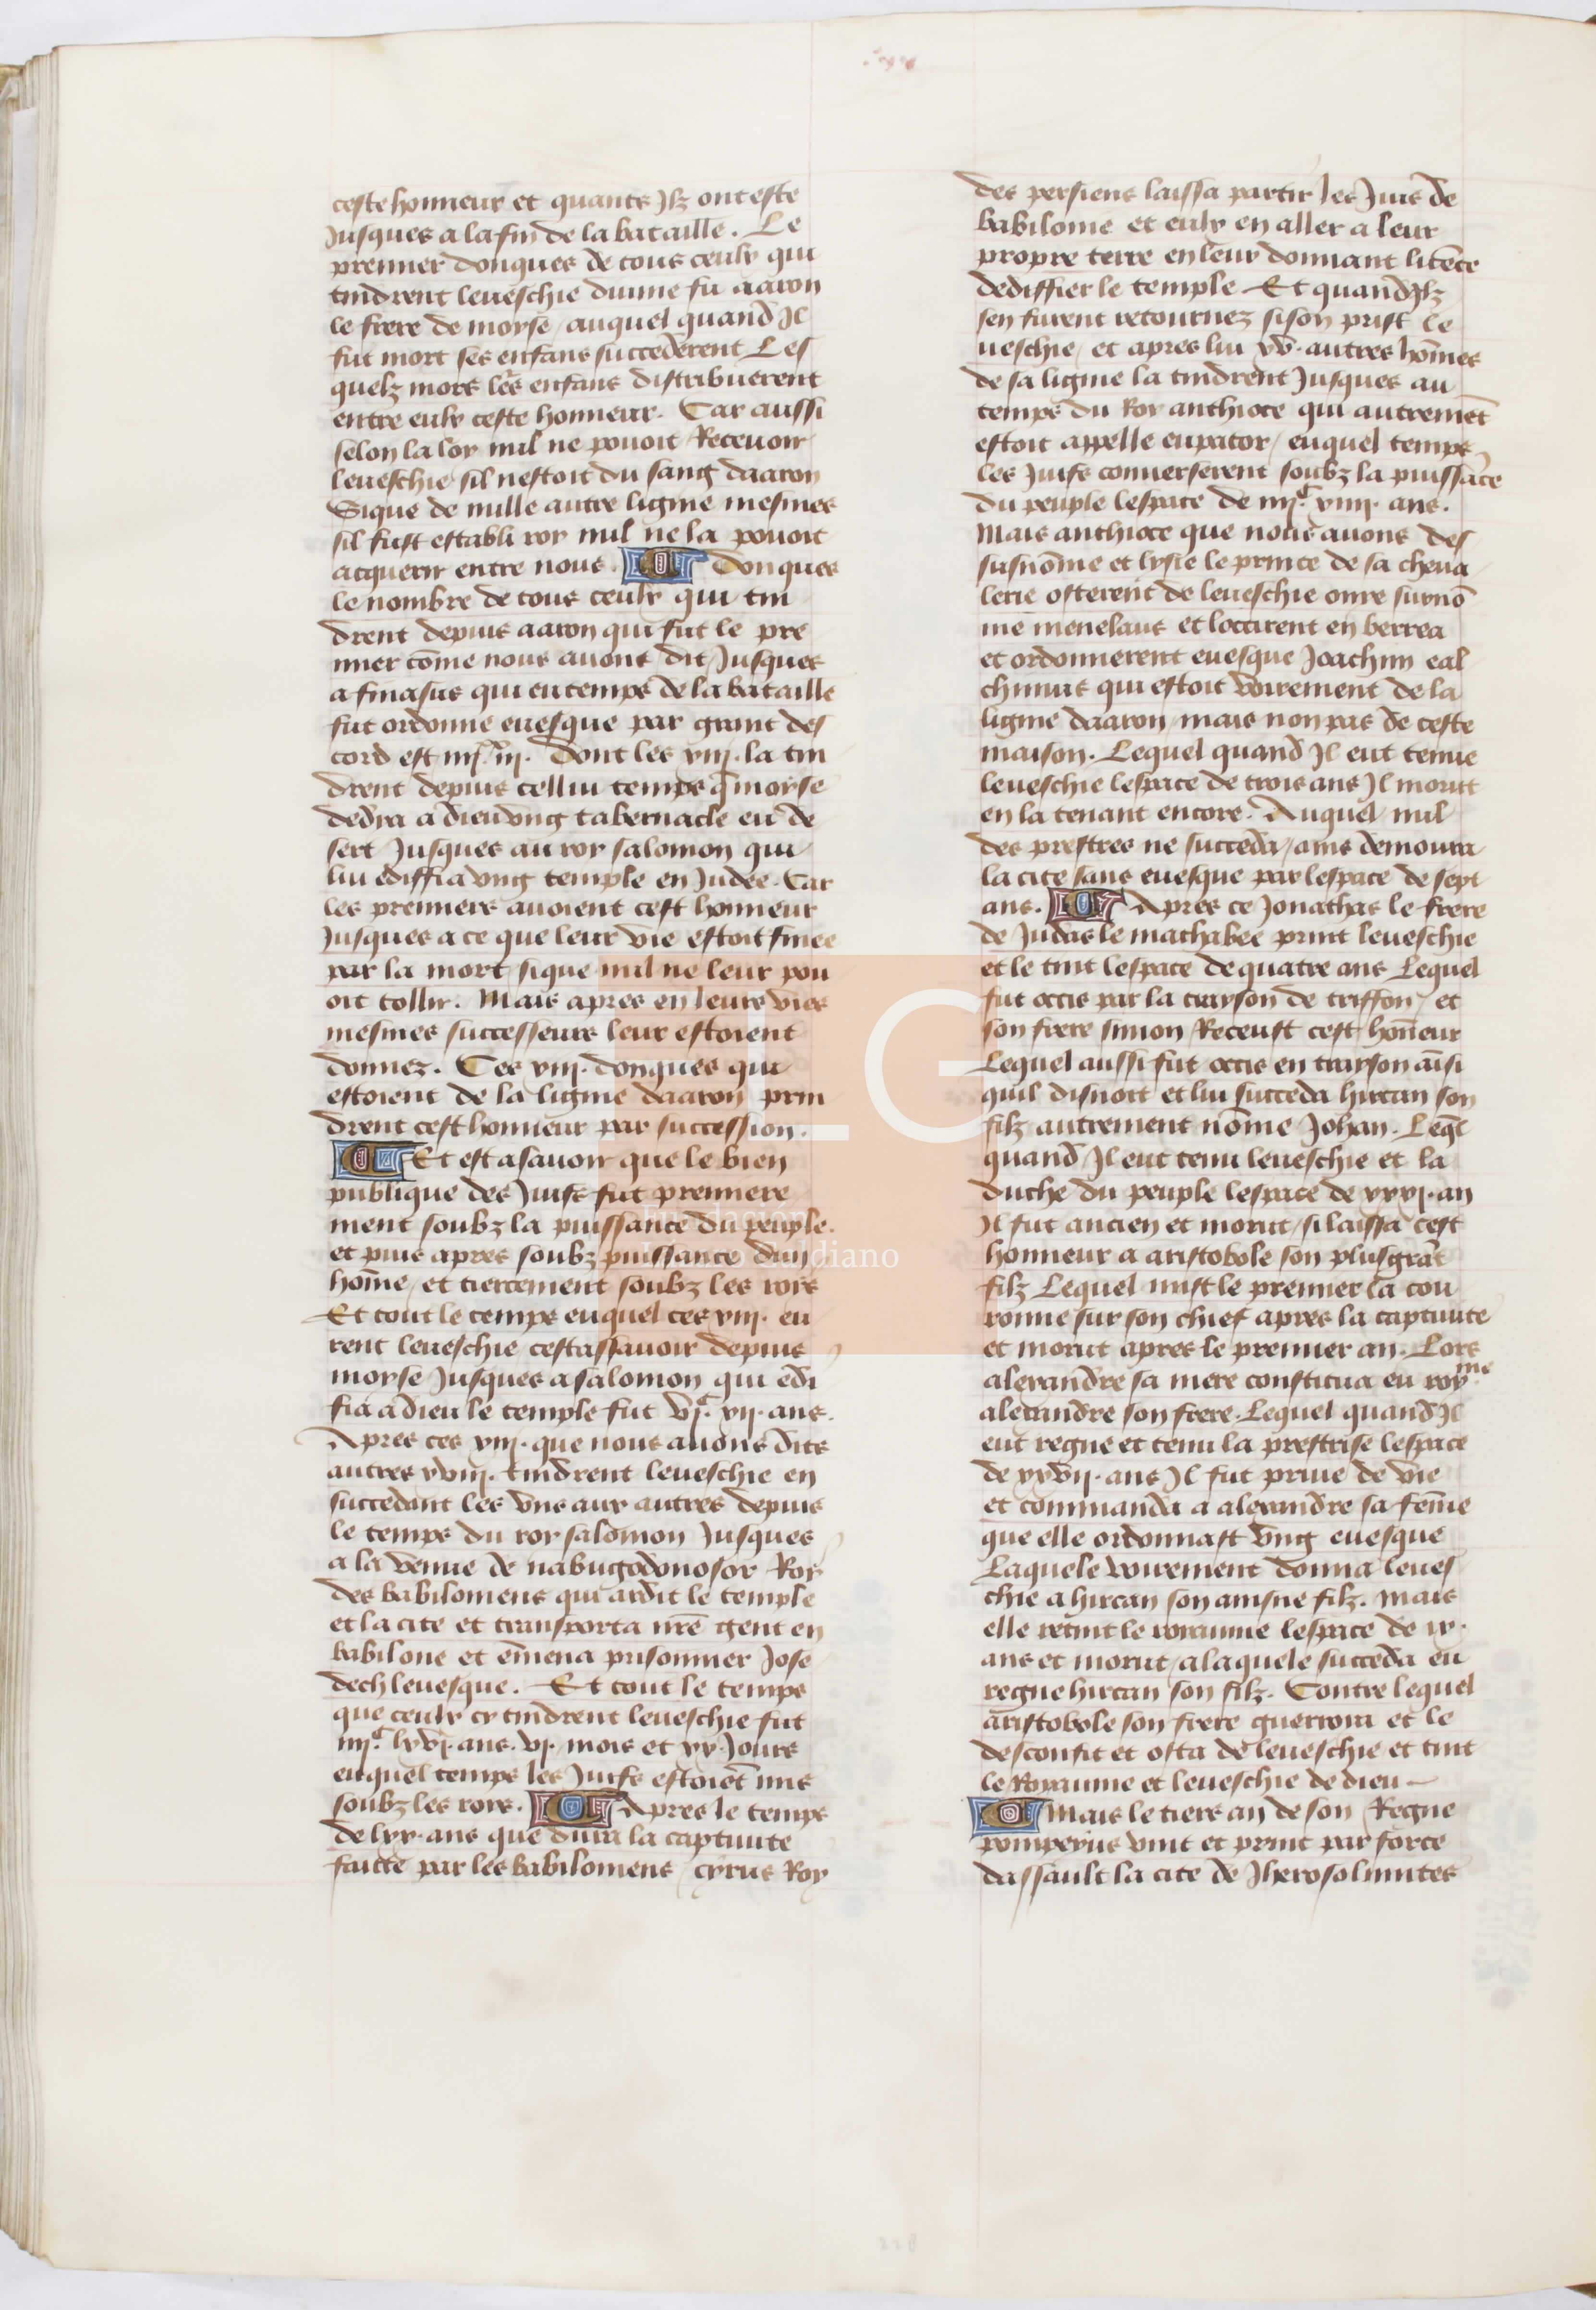 ceste honneur et quants Jlz ont este
Jusques a la fin de la bataille. Le
premier donques de tous ceulx qui
tindrent leueschie diuine fu aaron
le frere de moyse / auquel quand Jl
fut mort ses enfans succederent Les
quelz mors les enfans distribuerent
entre eulx ceste honneur. Car aussi
selon la loy nul ne pouoit Receuoir
leueschie sil nestoit du sang daaron
Sique de nulle autre ligne mesmes
sil fust establi roy nul ne la pouoit
acquerir entre nous. Donques
le nombre de tous ceulx qui tin
drent depuis aaron qui fut le pre
mier cōme nous auons dit / Jusques
a finasus qui eu temps de la bataille
fut ordonne euesque par grant des
cord est iiijxx iij. Dont les xiij. la tin
drent depuis cellui temps q̄ moyse
dedia a dieu vng tabernacle eu de
sert Jusques au roy salomon qui
lui ediffia vng temple en Judee. Car
les premiers auoient cest honneur
Jusques a ce que leur vie estoit finee
par la mort / sique nul ne leur pou
oit tollir. Mais apres en leurs vies
mesmes successeurs leur estoient
donnez. Ces xiij. donques qui
estoient de la ligne daaron prin
drent cest honneur par succession.
Et est asauoir que le bien
publique des Juifs fut premiere
ment soubz la puissance du peuple.
et puis apres soubz puissance dun
hōme / et tiercement soubz les rois
Et tout le temps euquel ces xiij. eu
rent leueschie cestassauoir depuis
moyse Jusques a salomon qui edi
fia a dieu le temple fut vjc. xij. ans.
Apres ces xiij. que nous auons dits
autres xviij. tindrent leueschie en
succedant les vns aux autres depuis
le temps du roy salomon Jusques
a la venue de nabugodonosor Roy
des babiloniens qui ardit le temple
et la cite et transporta nrē gent en
babilone et ēmena prisonnier Jose
dech leuesque. Et tout le temps
que ceulx cy tindrent leueschie fut
iiijc. lxvj. ans. vj. mois et xx. Jours
euquel temps les Juifs estoiēt mis
soubz les rois. Apres le temps
de lxx. ans que dura la captiuite
faitte par les babiloniens / cyrus Roy
des persiens laissa partir les Juis de
babilonie et eulx en aller a leur
propre terre en leur donnant licēce
dediffier le temple. Et quand Jlz
sen furent retournez sison prist le
ueschie / et apres lui xv. autres hōmes
de sa ligne la tindrent Jusques au
temps du Roy anthioce qui autremēt
estoit appelle eupator / euquel temps
les Juifs conuerserent soubz la puissāce
du peuple lespace de iiijc. xiiij. ans.
Mais anthioce que nous auons des
susnōme et lysie le prince de sa cheua
lerie osterent de leueschie onie surnō
me menelaus et loccirent en berrea
et ordonnerent euesque Joachim eal
chimus qui estoit voirement de la
ligne daaron / mais non pas de ceste
maison. Lequel quand Jl eut tenue
leueschie lespace de trois ans Jl morut
en la tenant encore. Auquel nul
des prestres ne succeda / ains demoura
la cite sans euesque par lespace de sept
ans. Apres ce Jonathas le frere
de Judas le machabee print leueschie
et le tint lespace de quatre ans Lequel
fut occis par la trayson de triffon / et
son frere simon Receust cest hōneur
Lequel aussi fut occis en trayson aīsi
quil disnoit et lui succeda hircan son
filz autrement nōme Johan. Leql̄
quand Jl eut tenu leueschie et la
duche du peuple lespace de xxxj. an
Jl fut ancien et morut / si laissa cest
honneur a aristobole son plusgrāt
filz Lequel mist le premier la cou
ronne sur son chief apres la captiuite
et morut apres le premier an. Lors
alexandre sa mere constitua eu royme
alexandre son frere. Lequel quand Jl
eut regne et tenu la prestrise lespace
de xxvij. ans Jl fut priue de vie
et commanda a alexandre sa fēme
que elle ordonnast vng euesque
Laquele voirement donna leues
chie a hircan son ainsne filz. Mais
elle retint le royaume lespace de ix.
ans et morut / a laquele succeda eu
regne hircan son filz. Contre lequel
aristobole son frere guerroia et le
desconfit et osta de leueschie et tint
le Royaume et leueschie de dieu
Mais le tiers an de son Regne
pompeyus vint et print par force
dassault la cite de Jherosolimites
Fundación
Lázaro Galdiano